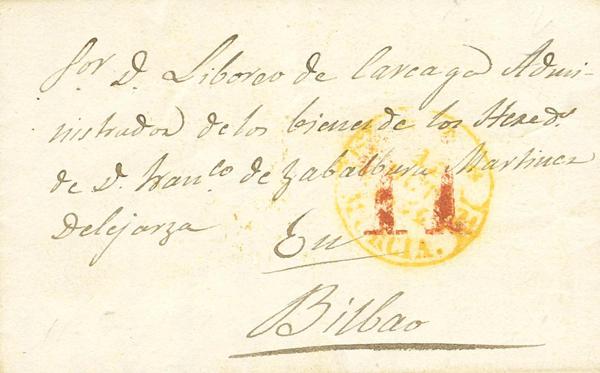 Sor D. Liborio de Careaga Admi-
nistrador de los bienes de los Hered.s
de D. Fran.co de Zabalburu Martinez
Delejarza
En
Bilbao
11
MURCIA.